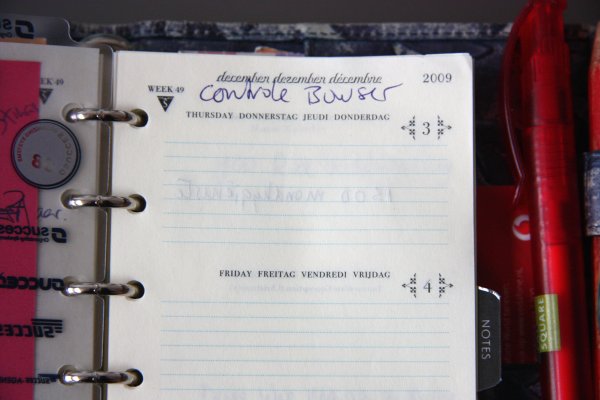 december dezember décembre 2009
WEEK 49
S
Controle Bowser
THURSDAY DONNERSTAG JEUDI DONDERDAG
3
FRIDAY FREITAG VENDREDI VRIJDAG
4
NOTES
SQUARE
WEEK 49
SUCCES
SUCCES
SUCCES